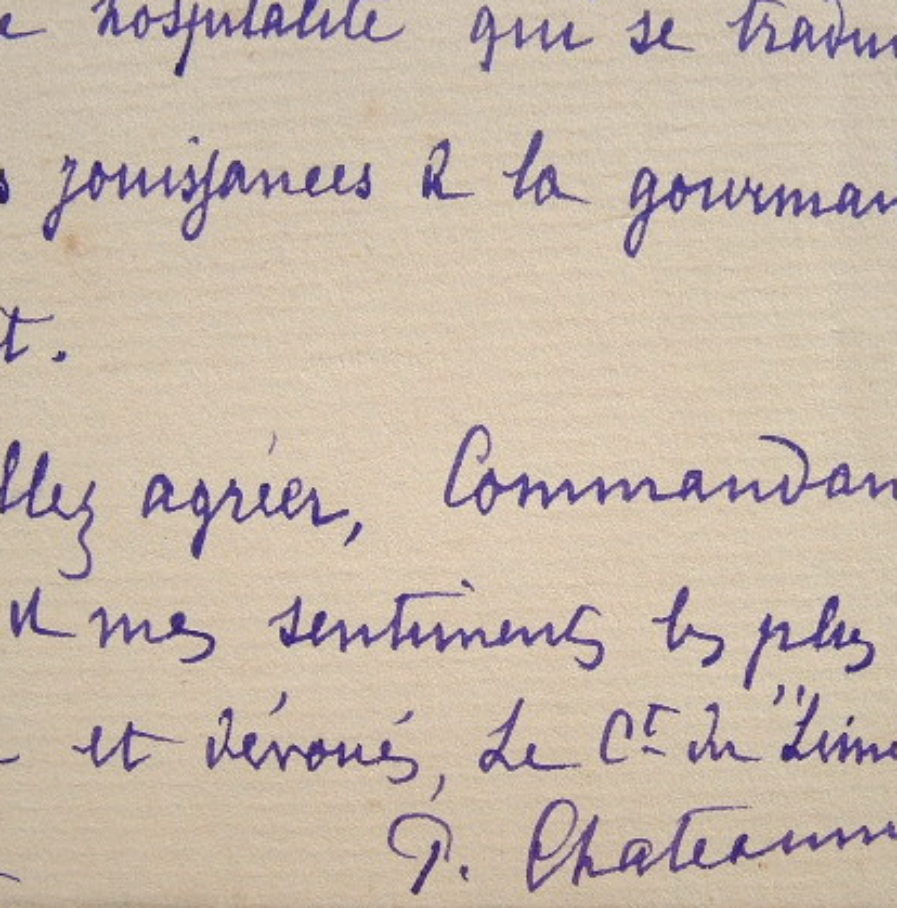 e hospitalité qui se tradui
s jouissances de la gourman
t.
llez agréer, Commandan
de mes sentiments les plus
et dévoués, Le Ct du "Limo
P. Chateau